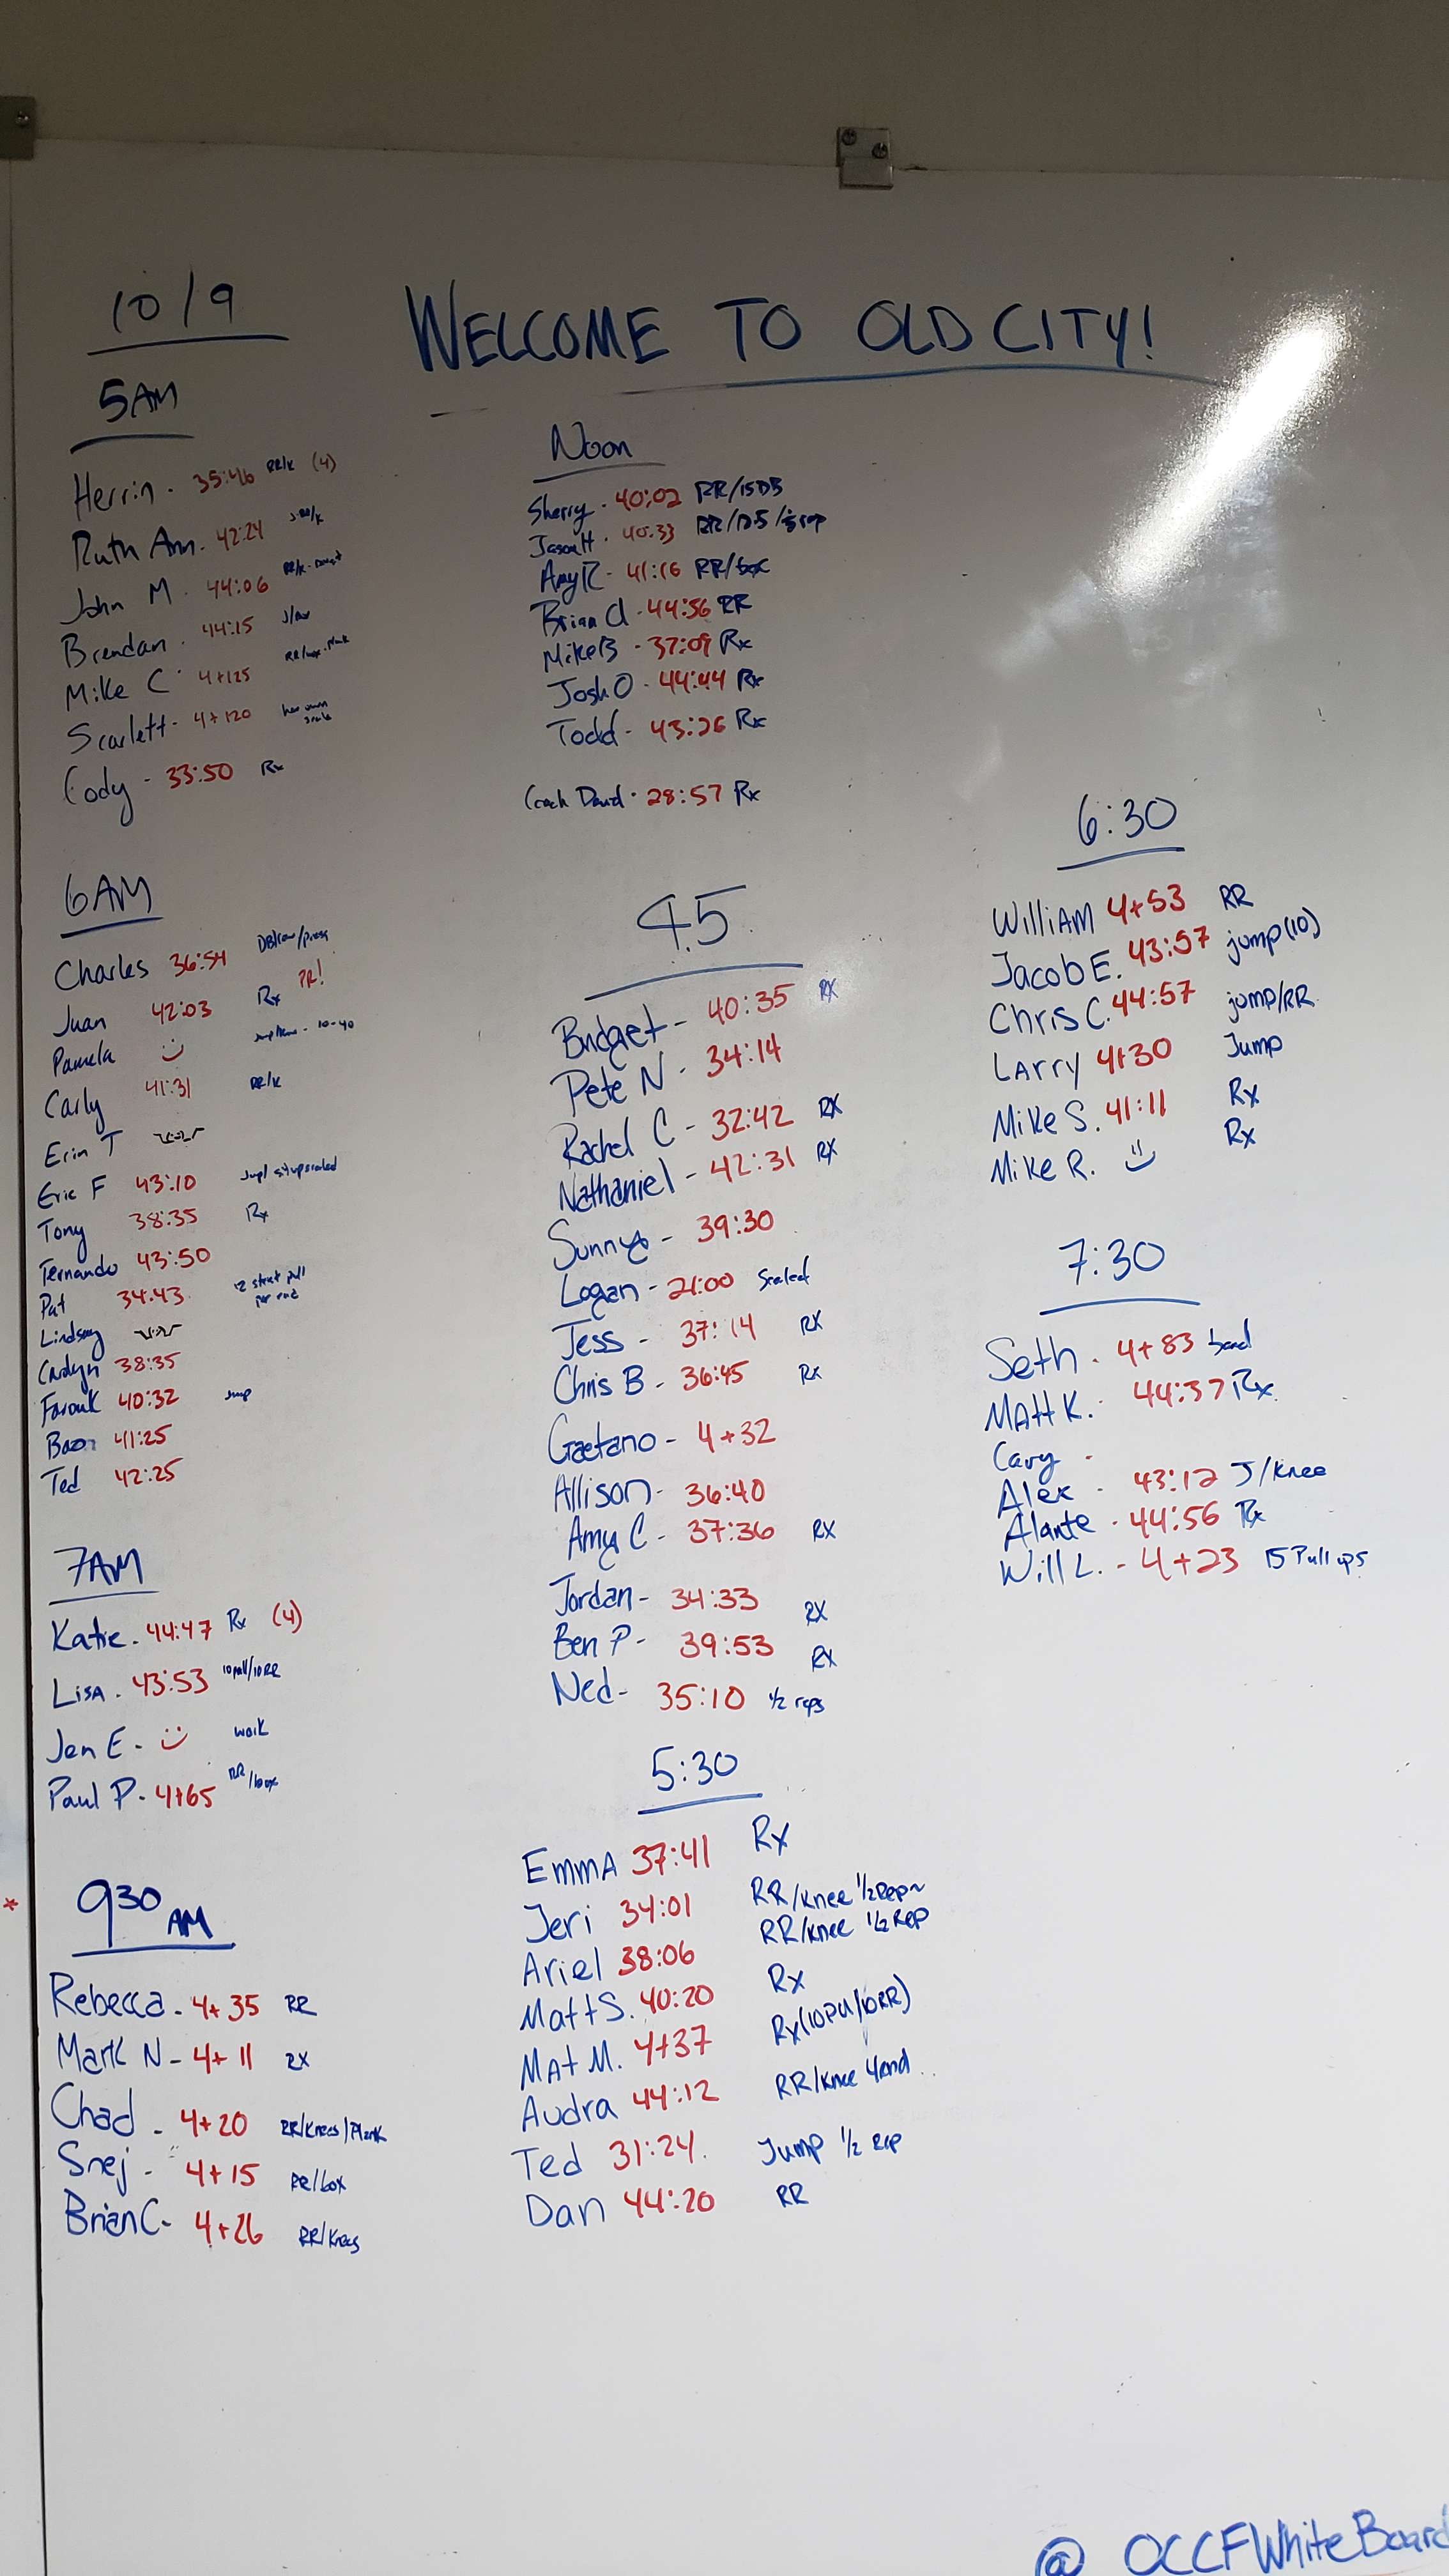 10/9
WELCOME TO OLD CITY!
5AM
Herrin - 35:46 RR/K (4)
Ruth Ann - 42:24
John M - 44:06
Brendan - 44:15
Mike C - 4+125
Scarlett - 4+120 her own scale
Cody - 33:50 Rx
6AM
Charles 36:54 DBrow/press
Juan 42:03 Rx PR!
Pamela 10-40
Carly 41:31 RR/K
Erin T
Eric F 43:10 Jump/situpscaled
Tony 38:35 Rx
Fernando 43:50
Pat 34:43 12 strict pull per rnd
Lindsay
Carolyn 38:35
Farouk 40:32 Jump
41:25
Ted 42:25
7AM
Katie - 44:47 Rx (4)
LisA - 43:53 10pull/10RR
Jen E - work
Paul P - 4+65 RR/box
*
930 AM
Rebecca - 4+35 RR
Mark N - 4+11 RX
Chad - 4+20 RR/Knees/Plank
Snej - 4+15 RR/box
Brian C - 4+26 RR/Knees
Noon
Sherry - 40:02 RR/15DB
Jason H - 40:33
Amy R - 41:16 RR/box
Brian Cl - 44:56 RR
Mike B - 37:09 Rx
Josh O - 44:44 Rx
Todd - 43:26 Rx
Coach David - 28:57 Rx
4.5
Bridget - 40:35 RX
Pete N - 34:14
Rachel C - 32:42 RX
Nathaniel - 42:31 RX
Sunny - 39:30
Logan - 21:00 Scaled
Jess - 37:14 RX
Chris B - 36:45 Rx
Gaetano - 4+32
Allison - 36:40
Amy C - 37:36 RX
Jordan - 34:33 RX
Ben P - 39:53 RX
Ned - 35:10 1/2 reps
5:30
EmmA 37:41 Rx
Jeri 34:01 RR/Knee 1/2Rep~
Ariel 38:06 RR/knee 1/2 Rep
Matt S. 40:20 Rx
MAt M. 4+37 Rx(10PU/10RR)
Audra 44:12 RR/Knee 4rnd
Ted 31:24 Jump 1/2 rep
Dan 44:20 RR
6:30
WilliAM 4+53 RR
Jacob E. 43:57 jump(10)
Chris C. 44:57 jump/RR
LArry 4+30 Jump
Mike S. 41:11 Rx
Mike R. Rx
7:30
Seth - 4+83 band
MAtt K. - 44:37 Rx
Cary -
Alex - 43:12 J/Knee
Alante - 44:56 Rx
Will L. - 4+23 15 Pull ups
@ OCCFWhiteBoard